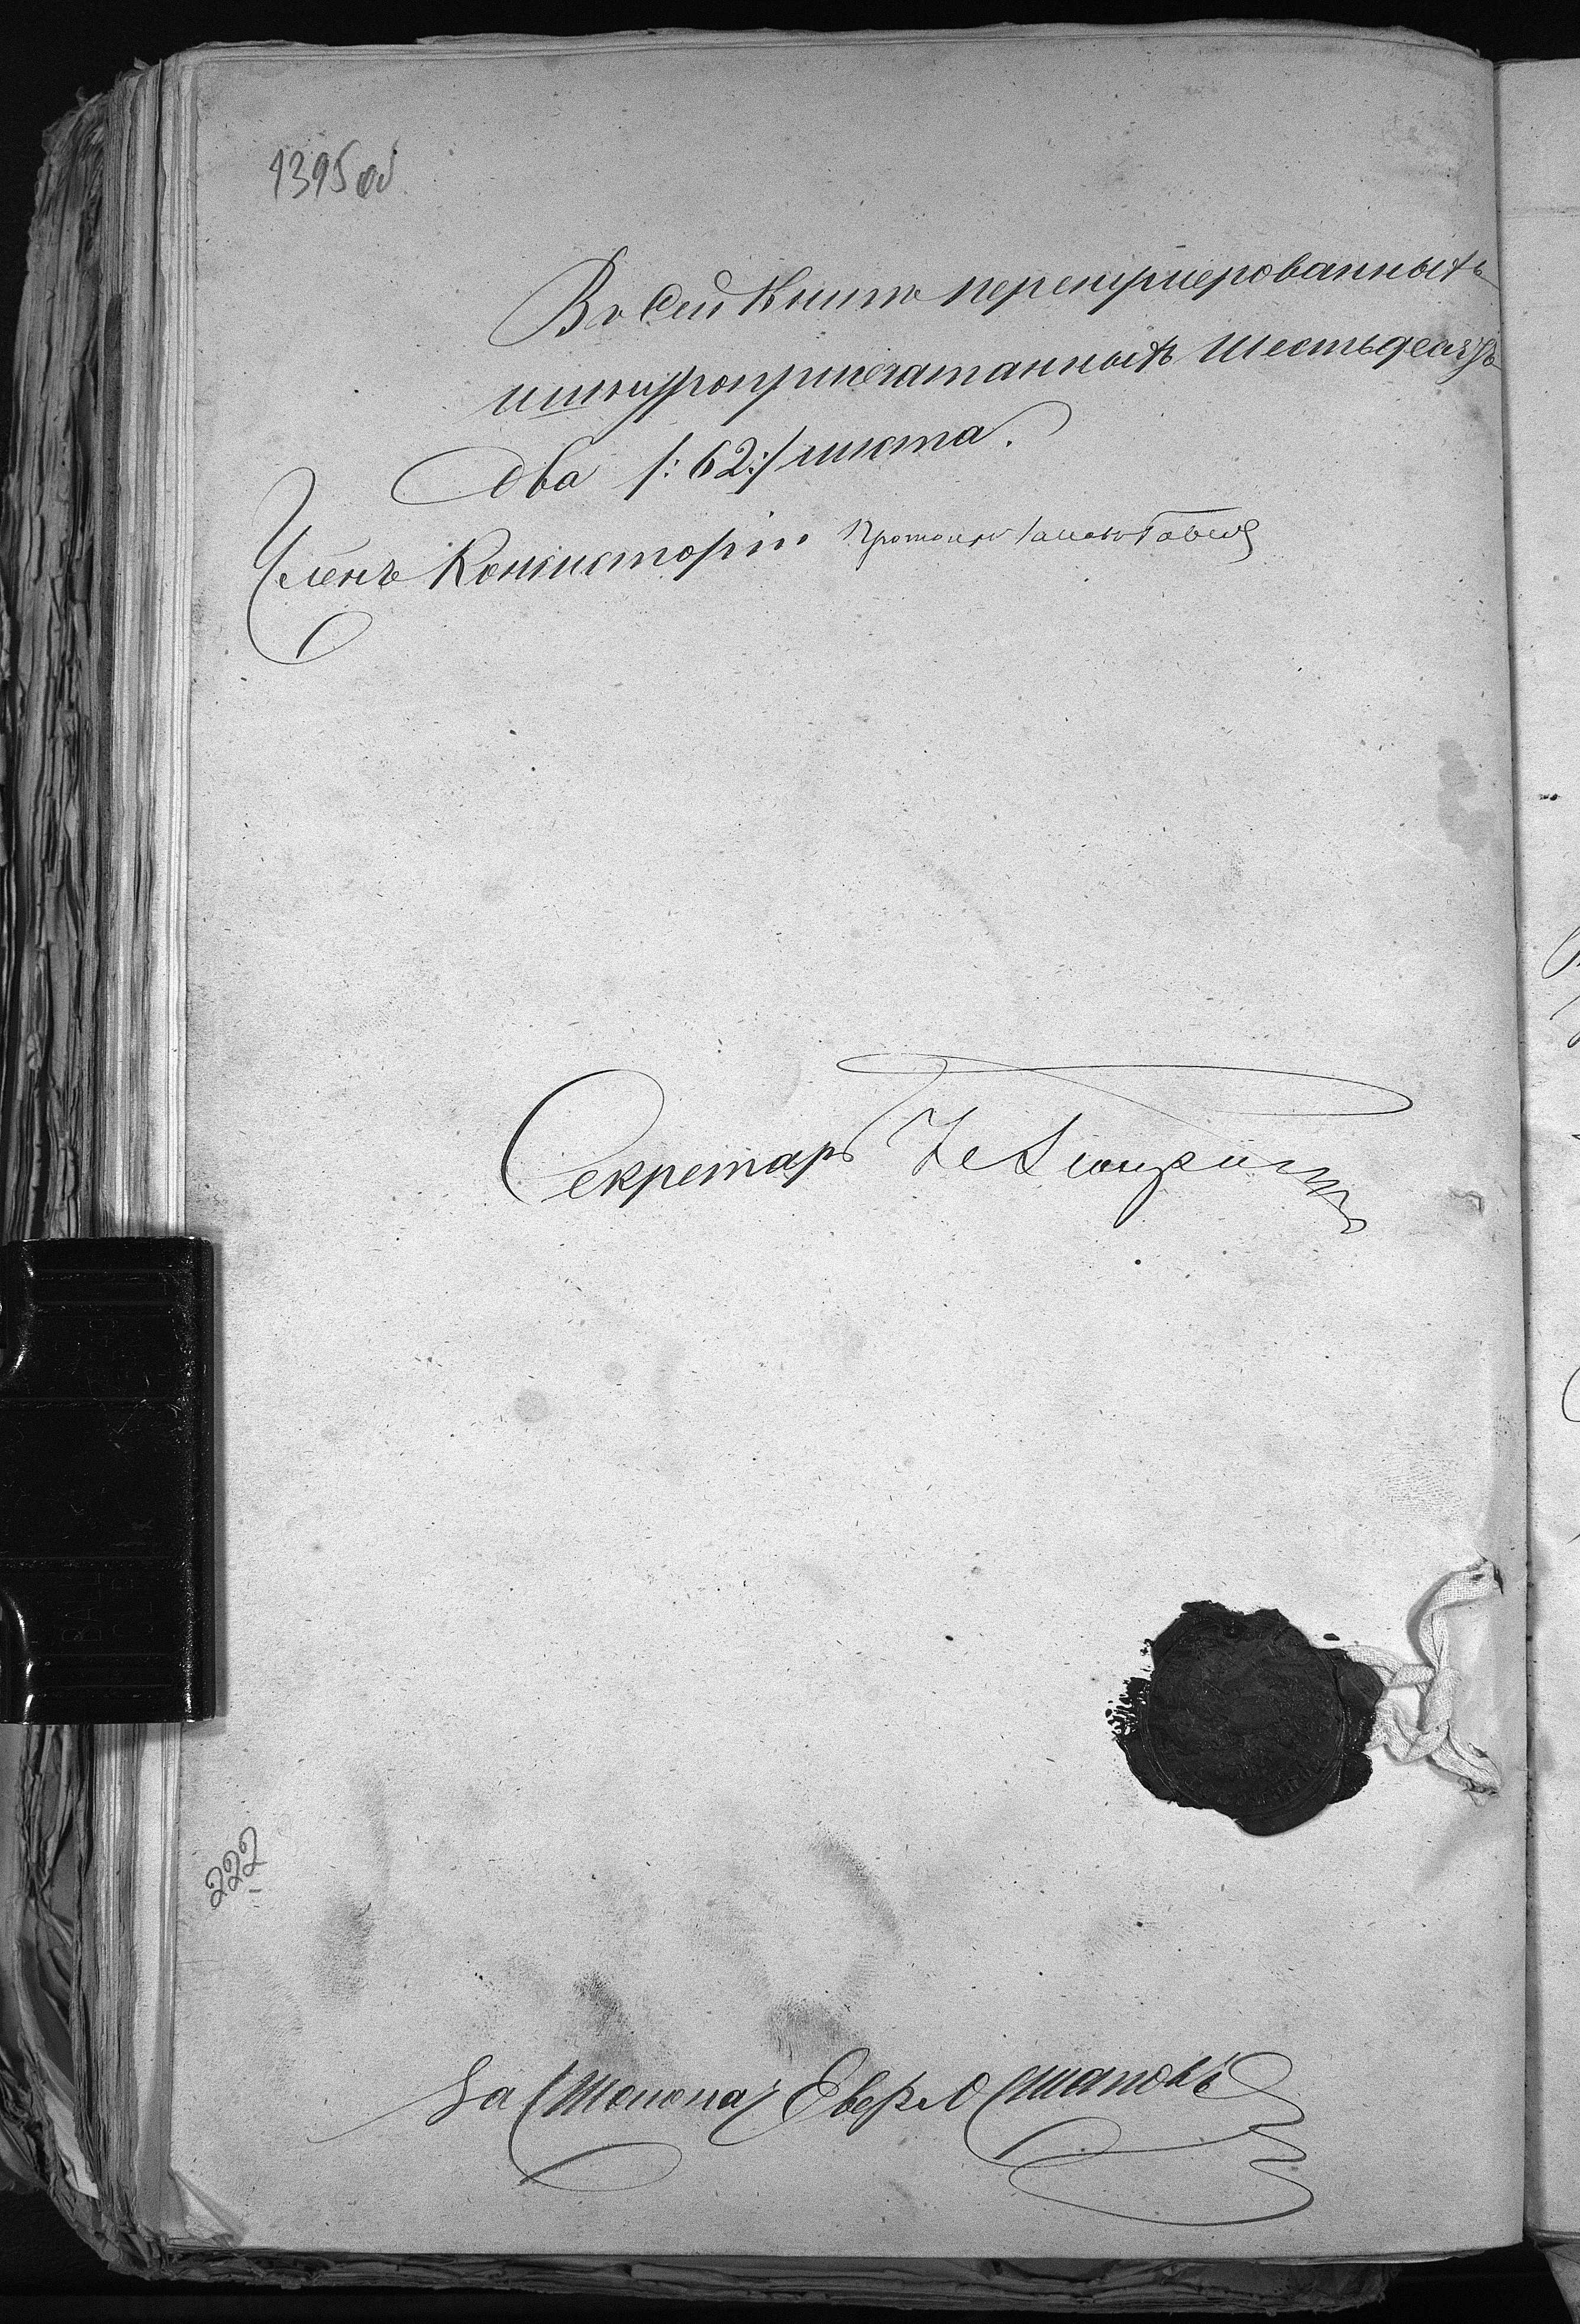 1395 об
Въ сей Книгѣ перенумерованныхъ
и шнуроприпечатанныхъ шестьдесятъ
два /: 62:/ листа.
Членъ Консисторіи
Секретарь
222
За Столона